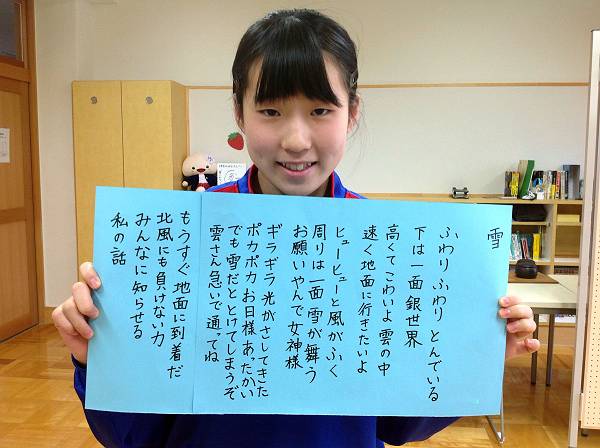 雪
ふわり ふわり とんでいる
下は一面 銀世界
高くてこわいよ 雲の中
速く地面に行きたいよ
ヒューヒューと風がふく
周りは一面 雪が舞う
お願いやんで女神様
ギラギラ 光がさしてきた
ポカポカ お日様あったかい
でも雪だととけてしまうぞ
雲さん急いで通ってね
もうすぐ地面に到着だ
北風にも負けない力
みんなに知らせる
私の話